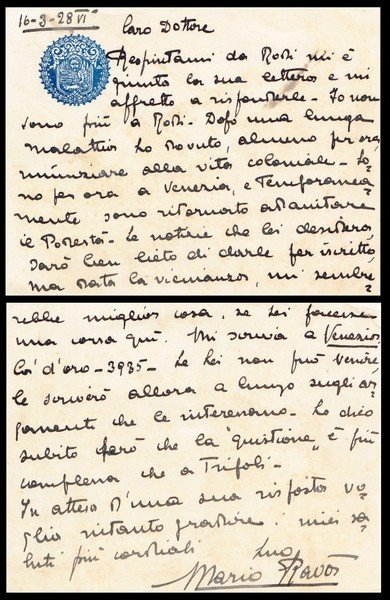 16-3-28 VI
Caro Dottore
Respintami da Rodi mi è
giunta la sua lettera e mi
affretto a risponderle - Io non
sono più a Rodi. Dopo una lunga
malattia ho dovuto, almeno per ora
rinunziare alla vita coloniale. So=
no per ora a Venezia, e temporanea=
mente sono ritornato ad abitare
il Podestà. Le notizie che lei desidera,
sarò ben lieto di darle per iscritto,
ma data la vicinanza, mi sembre=
rebbe miglior cosa, se lei facesse
una corsa qui. Mi scriva a Venezia
Ca' d'oro - 3935 - Se lei non può venire
le scriverò allora a lungo sugli ar=
gomenti che le interessano - Le dico
subito però che la "quistione" è più
complessa che a Tripoli -
In attesa d'una sua risposta vo=
glia intanto gradire i miei sa=
luti più cordiali
Suo
Mario